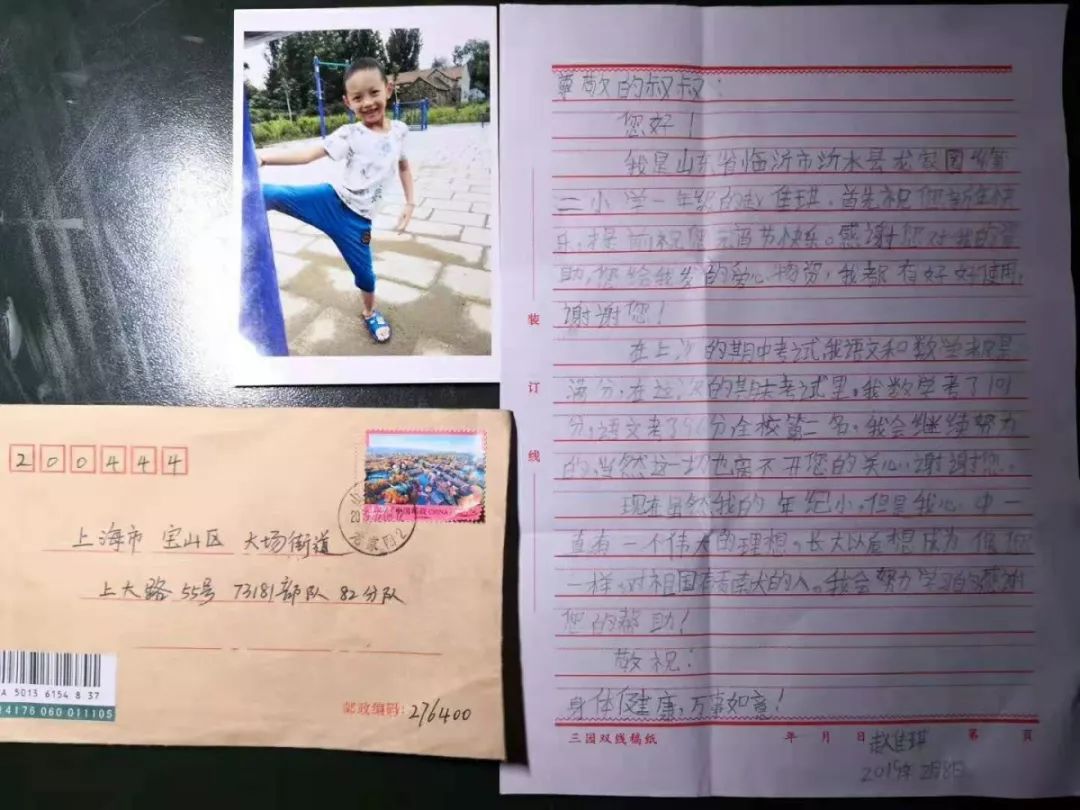 尊敬的叔叔：
您好！
我是山东省临沂市沂水县龙家圈第
二小学一年级的赵佳琪，首先祝您新年快
乐，提前祝您元宵节快乐。感谢您对我的资
助，您给我发的爱心物资，我都有好好使用，
谢谢您！
在上次的期中考试我语文和数学都是
满分，在这次的期末考试里，我数学考了101
分，语文考了 分全校第二名。我会继续努力
的，当然这一切也离不开您的关心，谢谢您。
现在虽然我的年纪小，但是我心中一
直有一个伟大的理想。长大以后想成为像您
一样，对祖国有贡献的人。我会努力学习的感谢
您的帮助！
敬祝：
身体健康，万事如意！
赵佳琪
2019年2月8日
装
订
线
三园双线稿纸 年 月 日 第 页
200444
中国邮政 CHINA
上海市 宝山区 大场街道
上大路 55号 73181部队 82分队
A 5013 6154 8 37
14176 060 011105
邮政编码：276400